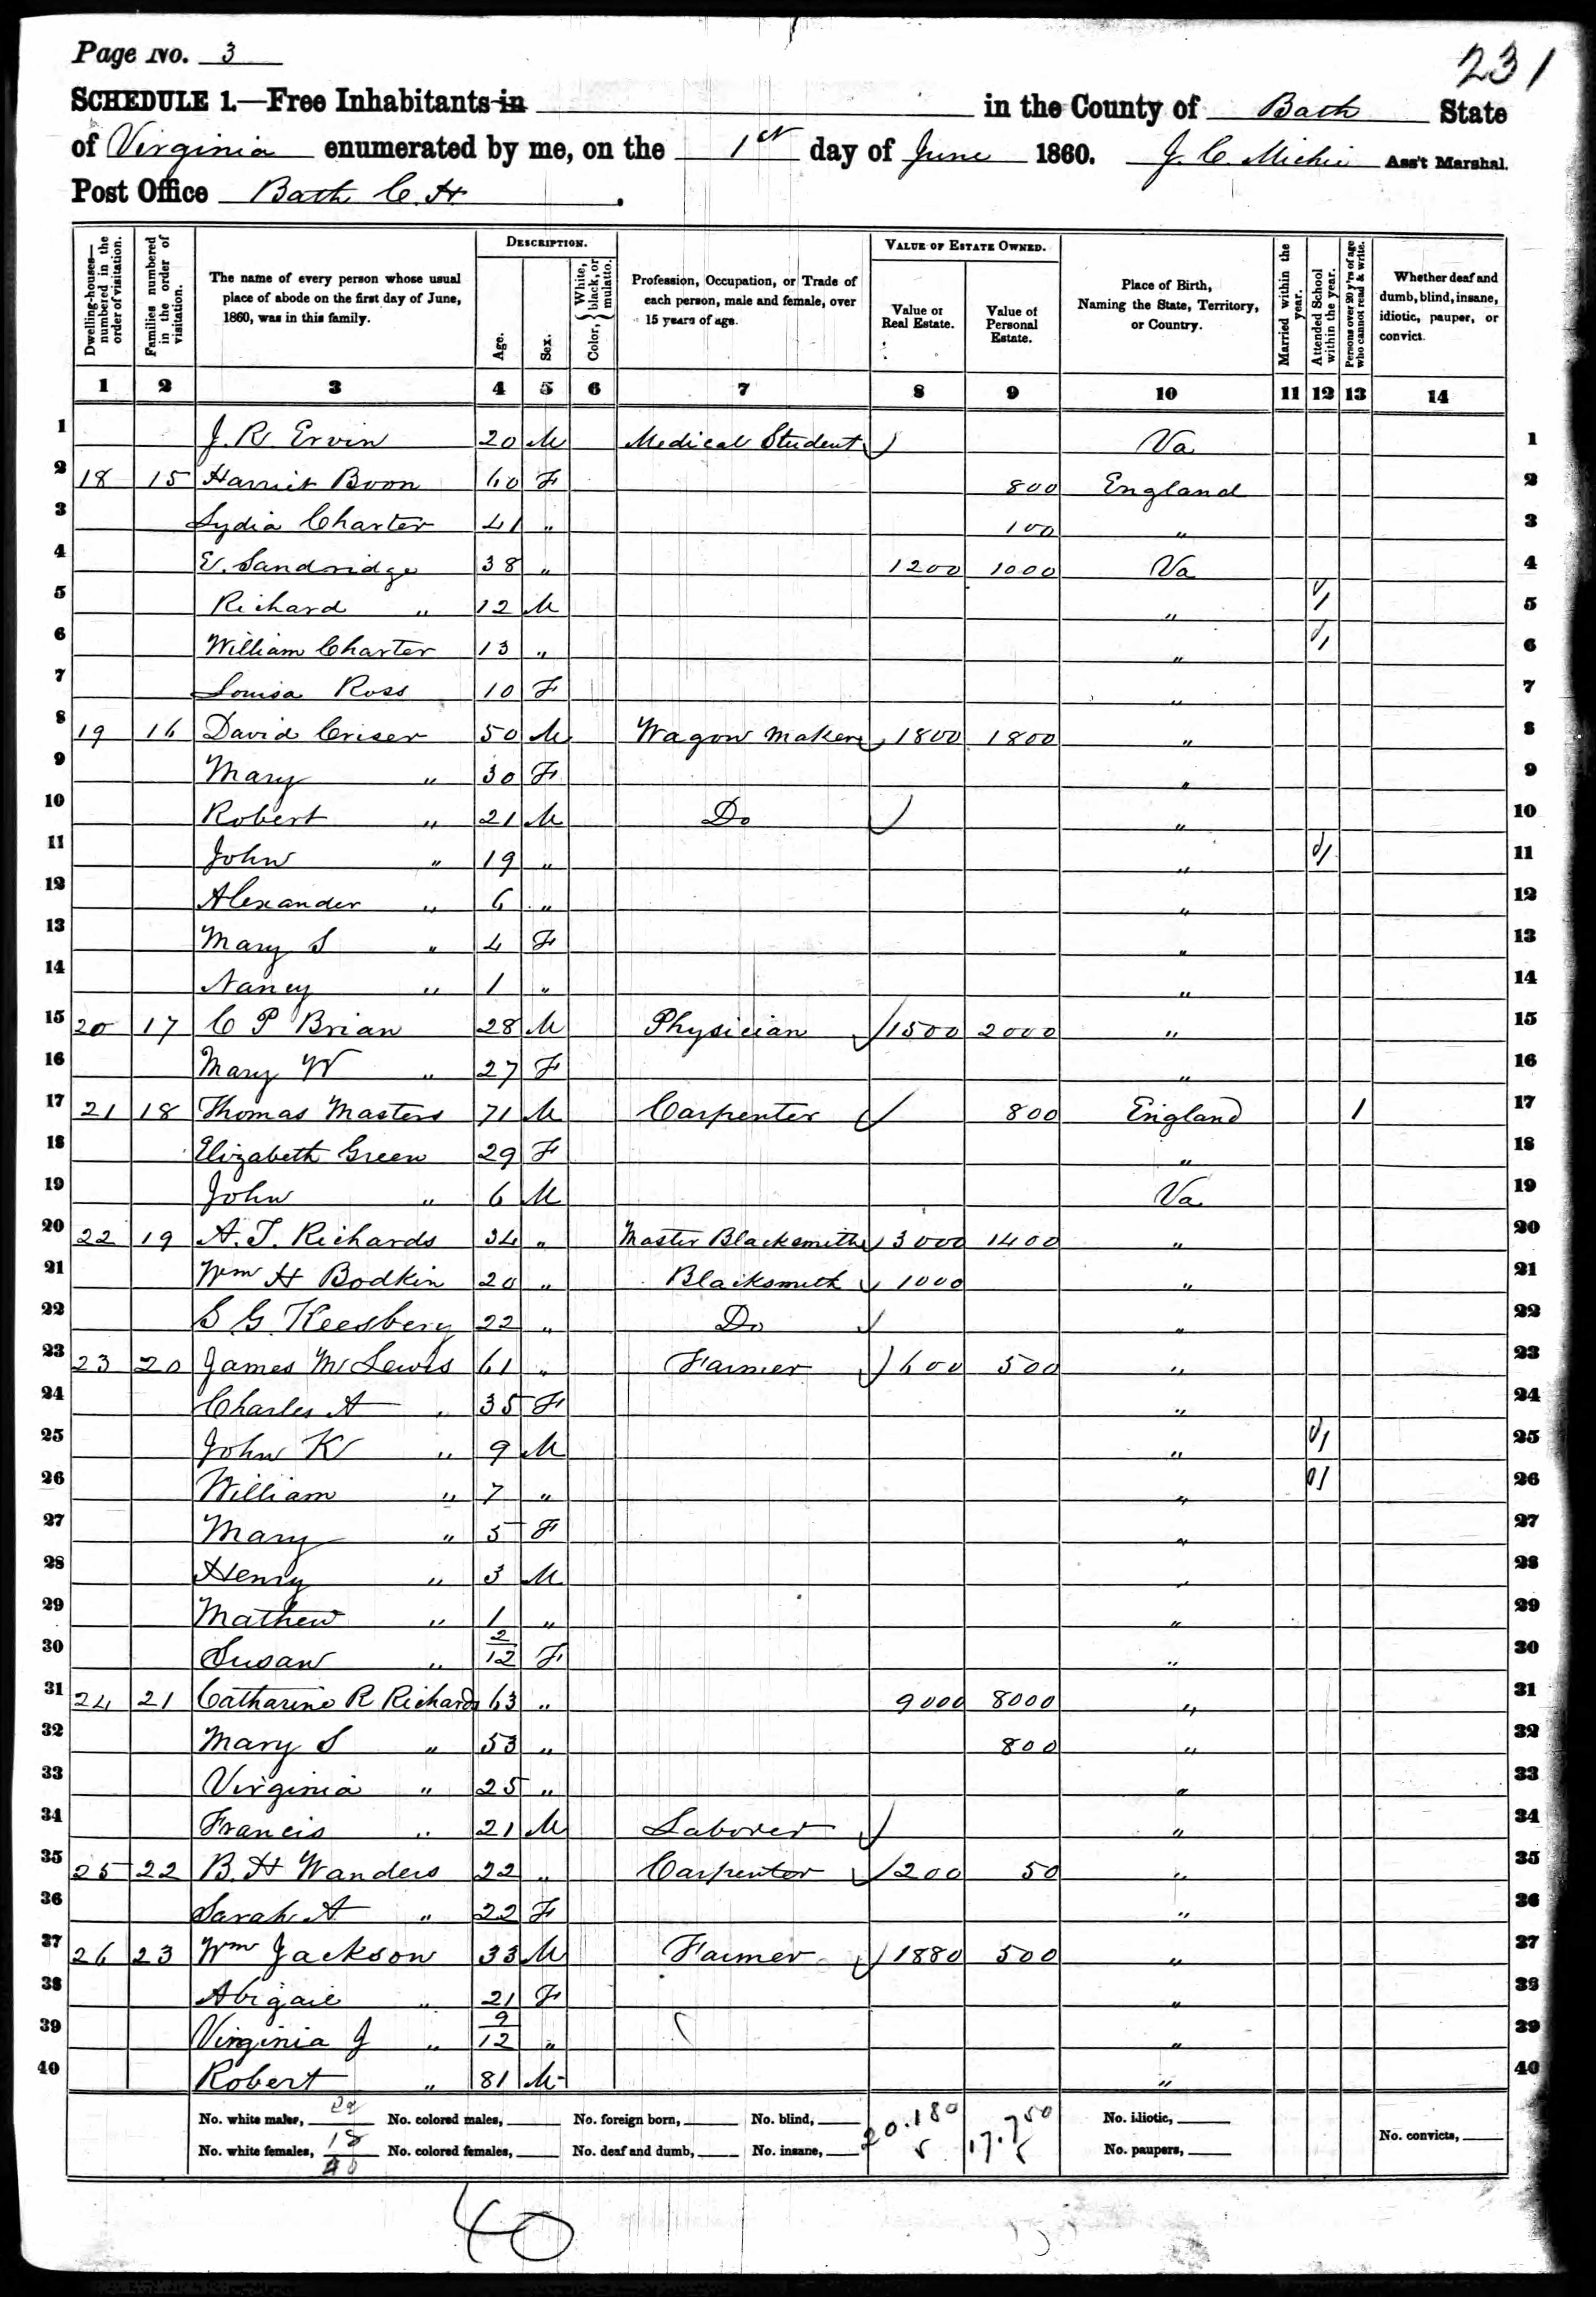 Page No. 3
231
SCHEDULE 1.—Free Inhabitants in in the County of Bath State
of Virginia enumerated by me, on the 1st day of June 1860. J. C. Michie Ass't Marshal.
Post Office Bath C. H.
Dwelling-houses—numbered in the order of visitation. Families numbered in the order of visitation. The name of every person whose usual place of abode on the first day of June, 1860, was in this family. DESCRIPTION. Age. Sex. Color, { White, black, or mulatto. Profession, Occupation, or Trade of each person, male and female, over 15 years of age. VALUE OF ESTATE OWNED. Value of Real Estate. Value of Personal Estate. Place of Birth, Naming the State, Territory, or Country. Married within the year. Attended School within the year. Persons over 20 y'rs of age who cannot read & write. Whether deaf and dumb, blind, insane, idiotic, pauper, or convict.
1 2 3 4 5 6 7 8 9 10 11 12 13 14
1 J. R. Ervin 20 M Medical Student Va 1
2 18 15 Harriet Boon 60 F 800 England 2
3 Lydia Charter 41 " 100 " 3
4 E. Sandridge 38 " 1200 1000 Va 4
5 Richard " 12 M " 1 5
6 William Charter 13 " " 1 6
7 Louisa Ross 10 F " 7
8 19 16 David Criser 50 M Wagon Maker 1800 1800 " 8
9 Mary " 30 F " 9
10 Robert " 21 M Do " 10
11 John " 19 " " 1 11
12 Alexander " 6 " " 12
13 Mary S " 4 F " 13
14 Nancy " 1 " " 14
15 20 17 C P Brian 28 M Physician 1500 2000 " 15
16 Mary W " 27 F " 16
17 21 18 Thomas Masters 71 M Carpenter 800 England 1 17
18 Elizabeth Green 29 F " 18
19 John " 6 M Va 19
20 22 19 A. T. Richards 34 " Master Blacksmith 3000 1400 " 20
21 Wm H Bodkin 20 " Blacksmith 1000 " 21
22 S G. Keesbery 22 " Do " 22
23 23 20 James M Lewis 61 " Farmer 600 500 " 23
24 Charles A " 35 F " 24
25 John K " 9 M " 1 25
26 William " 7 " " 1 26
27 Mary " 5 F " 27
28 Henry " 3 M " 28
29 Mathew " 1 " " 29
30 Susan " 2/12 F " 30
31 24 21 Catharine R Richards 63 " 9000 8000 " 31
32 Mary S " 53 " 800 " 32
33 Virginia " 25 " " 33
34 Francis " 21 M Laborer " 34
35 25 22 B. H Wanders 22 " Carpenter 200 50 " 35
36 Sarah A " 22 F " 36
37 26 23 Wm Jackson 33 M Farmer 1880 500 " 37
38 Abigail " 21 F " 38
39 Virginia J " 9/12 " " 39
40 Robert " 81 M " 40
No. white males, 22 No. colored males, No. foreign born, No. blind, 20.180 17.750 No. idiotic,
No. white females, 18 No. colored females, No. deaf and dumb, No. insane, 5 5 No. paupers, No. convicts,
40
40